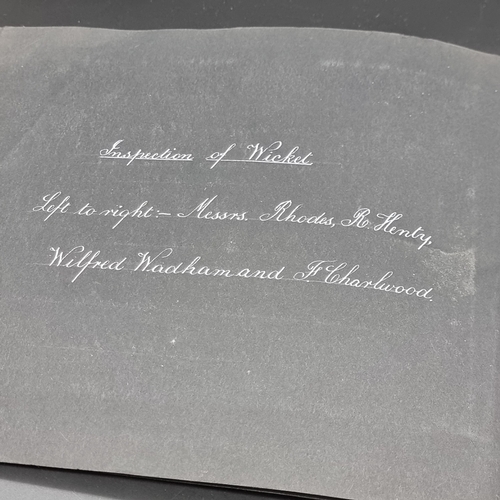 Inspection of Wicket.
Left to right:- Messrs. Rhodes, R. Henty,
Wilfred Wadham and F Charlwood.